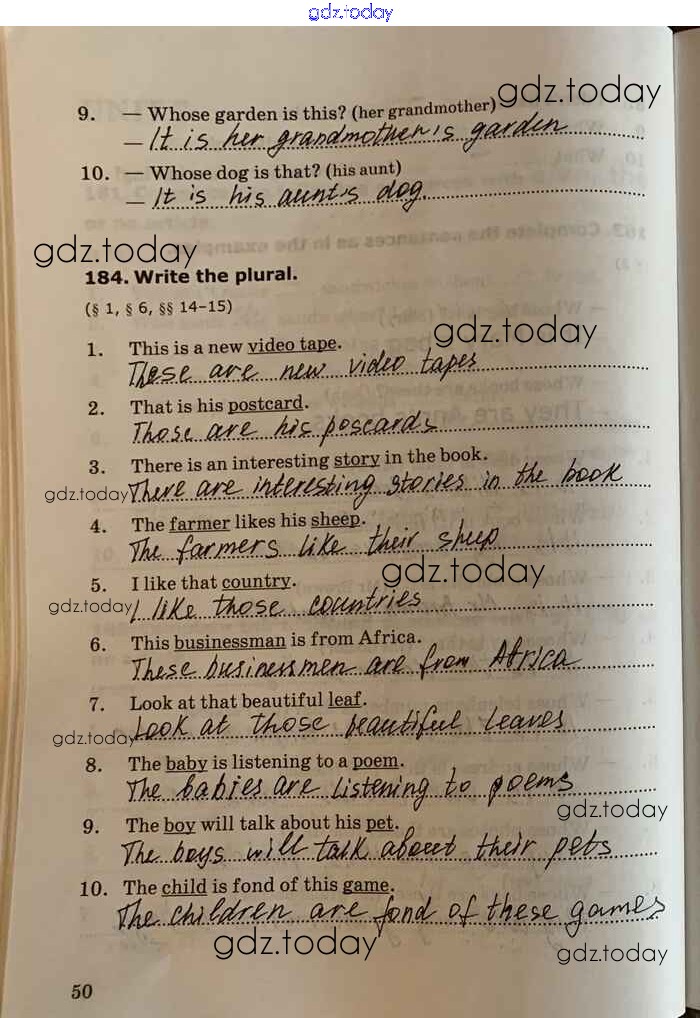 gdz.today
gdz.today
9. — Whose garden is this? (her grandmother)
— It is her grandmother's garden
10. — Whose dog is that? (his aunt)
— It is his aunt's dog.
gdz.today
184. Write the plural.
(§ 1, § 6, §§ 14–15)
gdz.today
1. This is a new video tape.
These are new video tapes
2. That is his postcard.
Those are his poscards
3. There is an interesting story in the book.
gdz.today
There are interesting stories in the book
4. The farmer likes his sheep.
The farmers like their sheep
gdz.today
5. I like that country.
gdz.today
I like those countries
6. This businessman is from Africa.
These businessmen are from Africa
7. Look at that beautiful leaf.
gdz.today
Look at those beautiful leaves
8. The baby is listening to a poem.
The babies are listening to poems
gdz.today
9. The boy will talk about his pet.
The boys will talk about their pets
10. The child is fond of this game.
The children are fond of these games
gdz.today
gdz.today
50